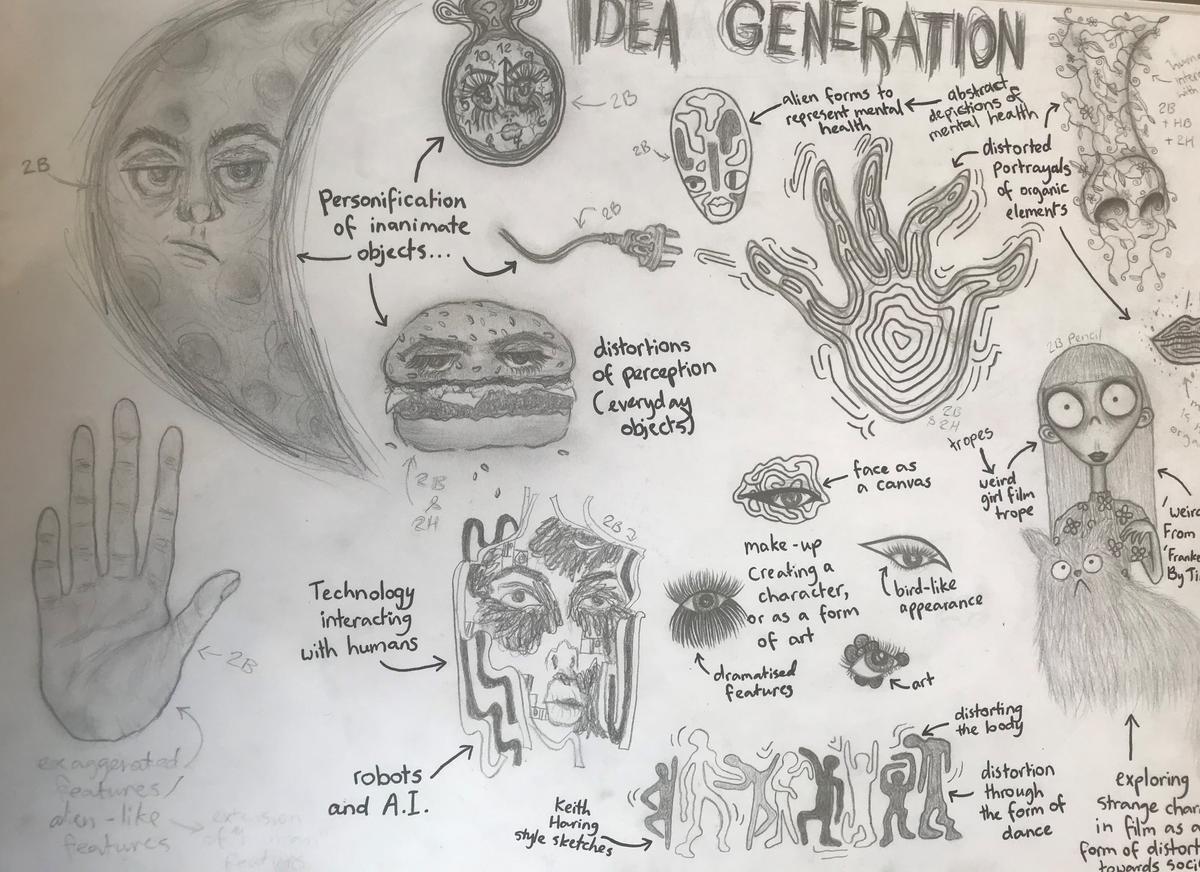 IDEA GENERATION
2B
10 12
2B
Personification
of inanimate
objects...
2B
2B
alien forms to
represent mental
health
abstract
depictions of
mental health
distorted
Portrayals
of organic
elements
2B
+ HB
+ 2H
distortions
of perception
(everyday
objects)
2B
&
2H
2B
& 2H
2B Pencil
tropes
weird
girl film
trope
'weird
From
'Franke
By Ti
face as
a canvas
make-up
creating a
character,
or as a form
of art
bird-like
appearance
dramatised
features
art
2B
Technology
interacting
with humans
robots
and A.I.
2B
exaggerated
features/
alien-like
features
extension
of
features
Keith
Haring
style sketches
distorting
the body
distortion
through
the form of
dance
exploring
strange char
in film as a
form of distort
towards soci